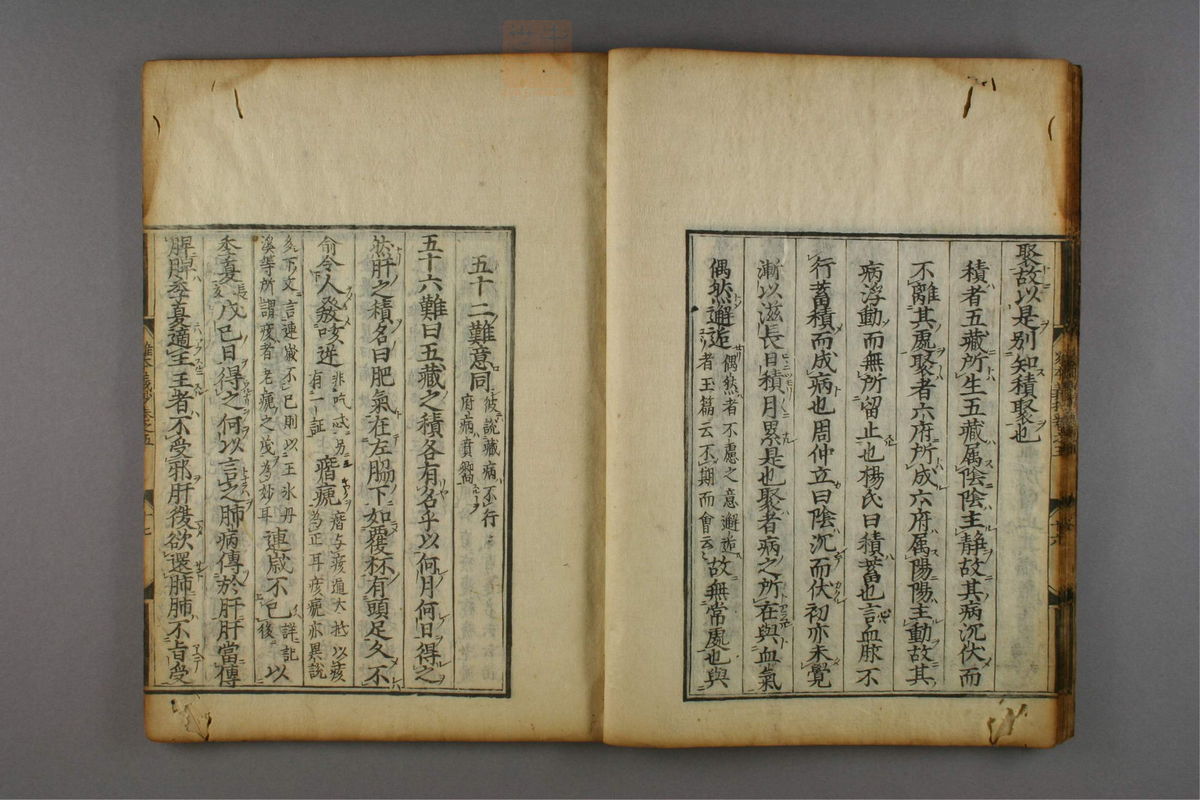 聚故以是別知積聚也
積者五藏所生五藏属陰陰主静故其病沉伏而
不離其處聚者六府所成六府属陽陽主動故其
病浮動而無所留止也楊氏曰積蓄也言血脉不
行蓄積而成病也周仲立曰陰沉而伏初亦未覺
漸以滋長日積月累是也聚者病之所在與血氣
偶然邂逅偶然者不慮之意邂逅
者玉篇云不期而會云云故無常處也與
五十二難意同彼說藏病不行
府病賁嚮
五十六難曰五藏之積各有名乎以何月何日得之
然肝之積名曰肥氣在左脇下如覆杯有頭足久不
俞令人發咳逆
有一証瘖瘧瘖与痎通大抵以痎
為正耳痎瘧亦異說
炙下文言連歲不已則以王氷丹
溪等所謂痎者老瘧之茂為妙耳連歲不已詳記
後以
季夏戊巳日得之何以言之肺病傳於肝肝當傳
脾脾季夏適王王者不受邪肝復欲還肺肺不肯受